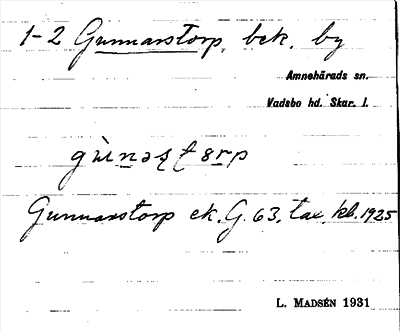 1-2 Gunnarstorp, bek. by
Amnehärads sn.
Vadsbo hd. Skar. l.
Gunnarstorp ek. G. 63, tax. kb. 1925
L. MADSÉN 1931